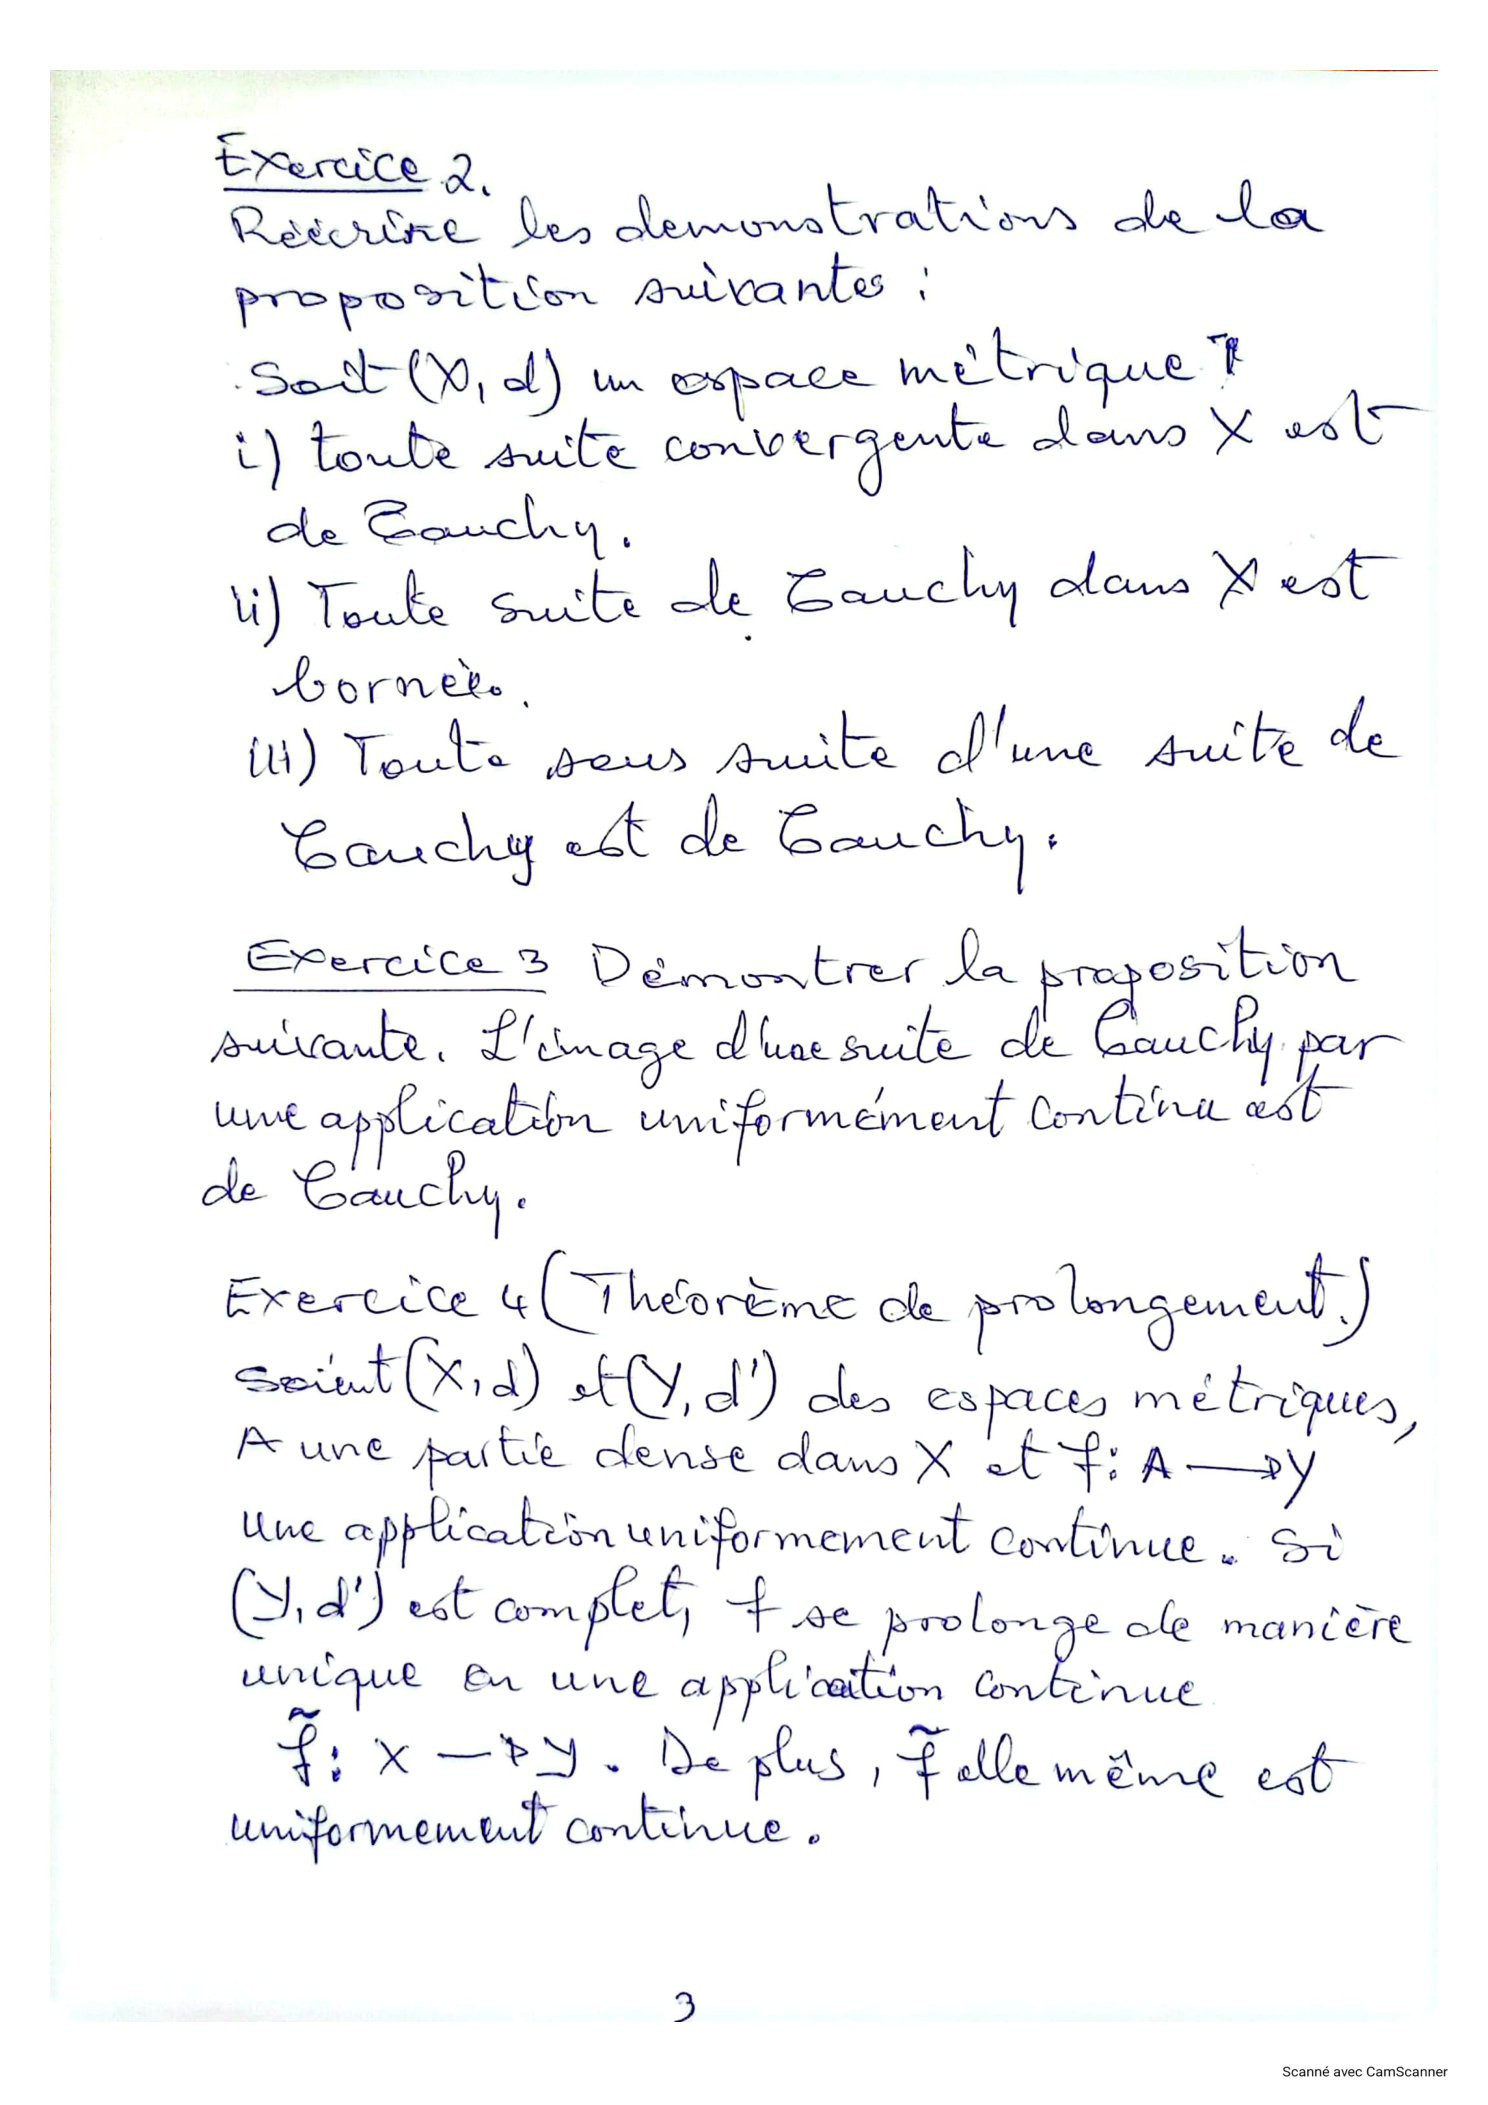 Exercice 2.
Réécrire les demonstrations de la
proposition suivantes :
Soit (X, d) un espace métrique
i) toute suite convergente dans X est
de Cauchy.
ii) Toute suite de Cauchy dans X est
bornée.
iii) Toute sous suite d'une suite de
Cauchy est de Cauchy.
Exercice 3 Démontrer la proposition
suivante. L'image d'une suite de Cauchy par
une application uniformément continu est
de Cauchy.
Exercice 4 (Théorème de prolongement.)
Soient (X, d) et (Y, d') des espaces métriques,
A une partie dense dans X et f: A → Y
une application uniformement continue. Si
(Y, d') est complet, f se prolonge de manière
unique en une application continue
f̃ : X → Y. De plus, f̃ elle même est
uniformement continue.
3
Scanné avec CamScanner